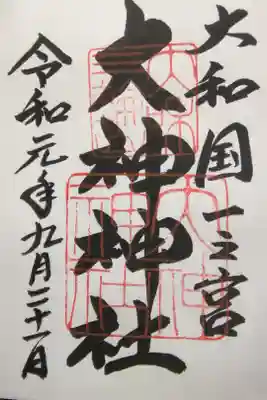 大和国一之宮
大神神社
令和元年九月二十一日